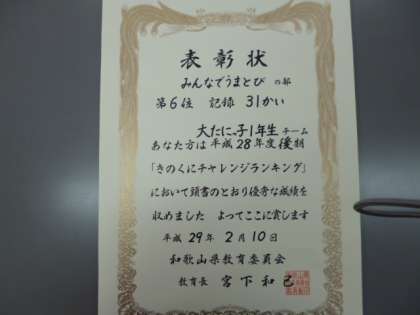 表彰状
みんなでうまとび の部
第6位 記録 31かい
大たにっ子1年生 チーム
あなた方は平成28年度後期
「きのくにチャレンジランキング」
において頭書のとおり優秀な成績を
収めました よってここに賞します
平成29年2月10日
和歌山県教育委員会
教育長 宮下和己